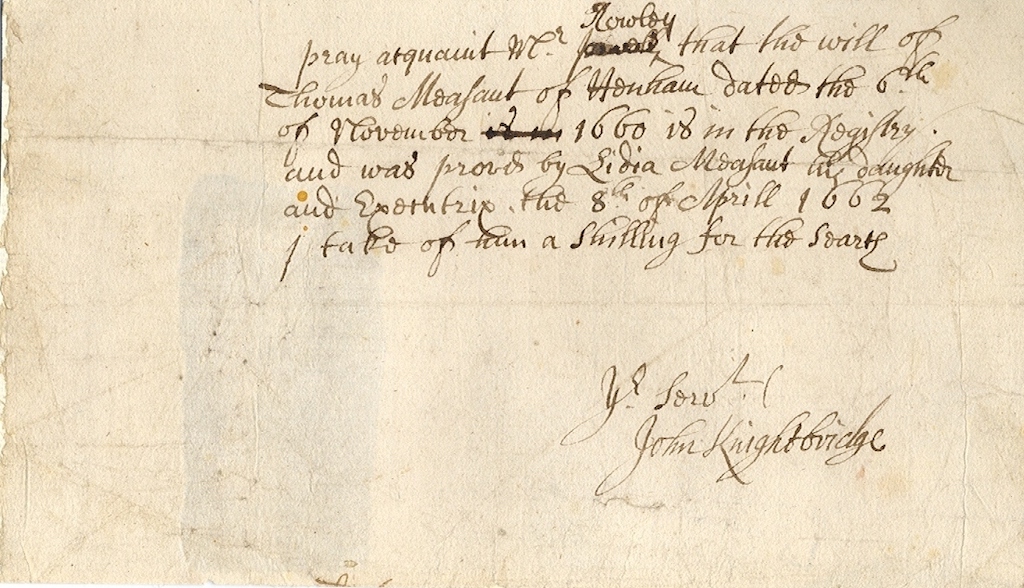 Rowley
pray acquaint Mr that the will of
Thomas Measant of Henham dated the 6th
of November 1660 is in the Registry.
and was proved by Lidia Measant his daughter
and Executrix. the 8th of Aprill 1662
I take of him a shilling for the search
Yr Servt
John Knightbridge